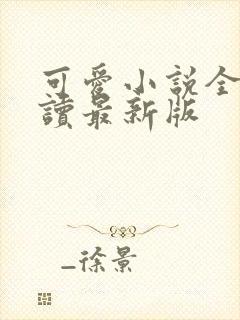 可愛小說全
讀最新版
_徐景